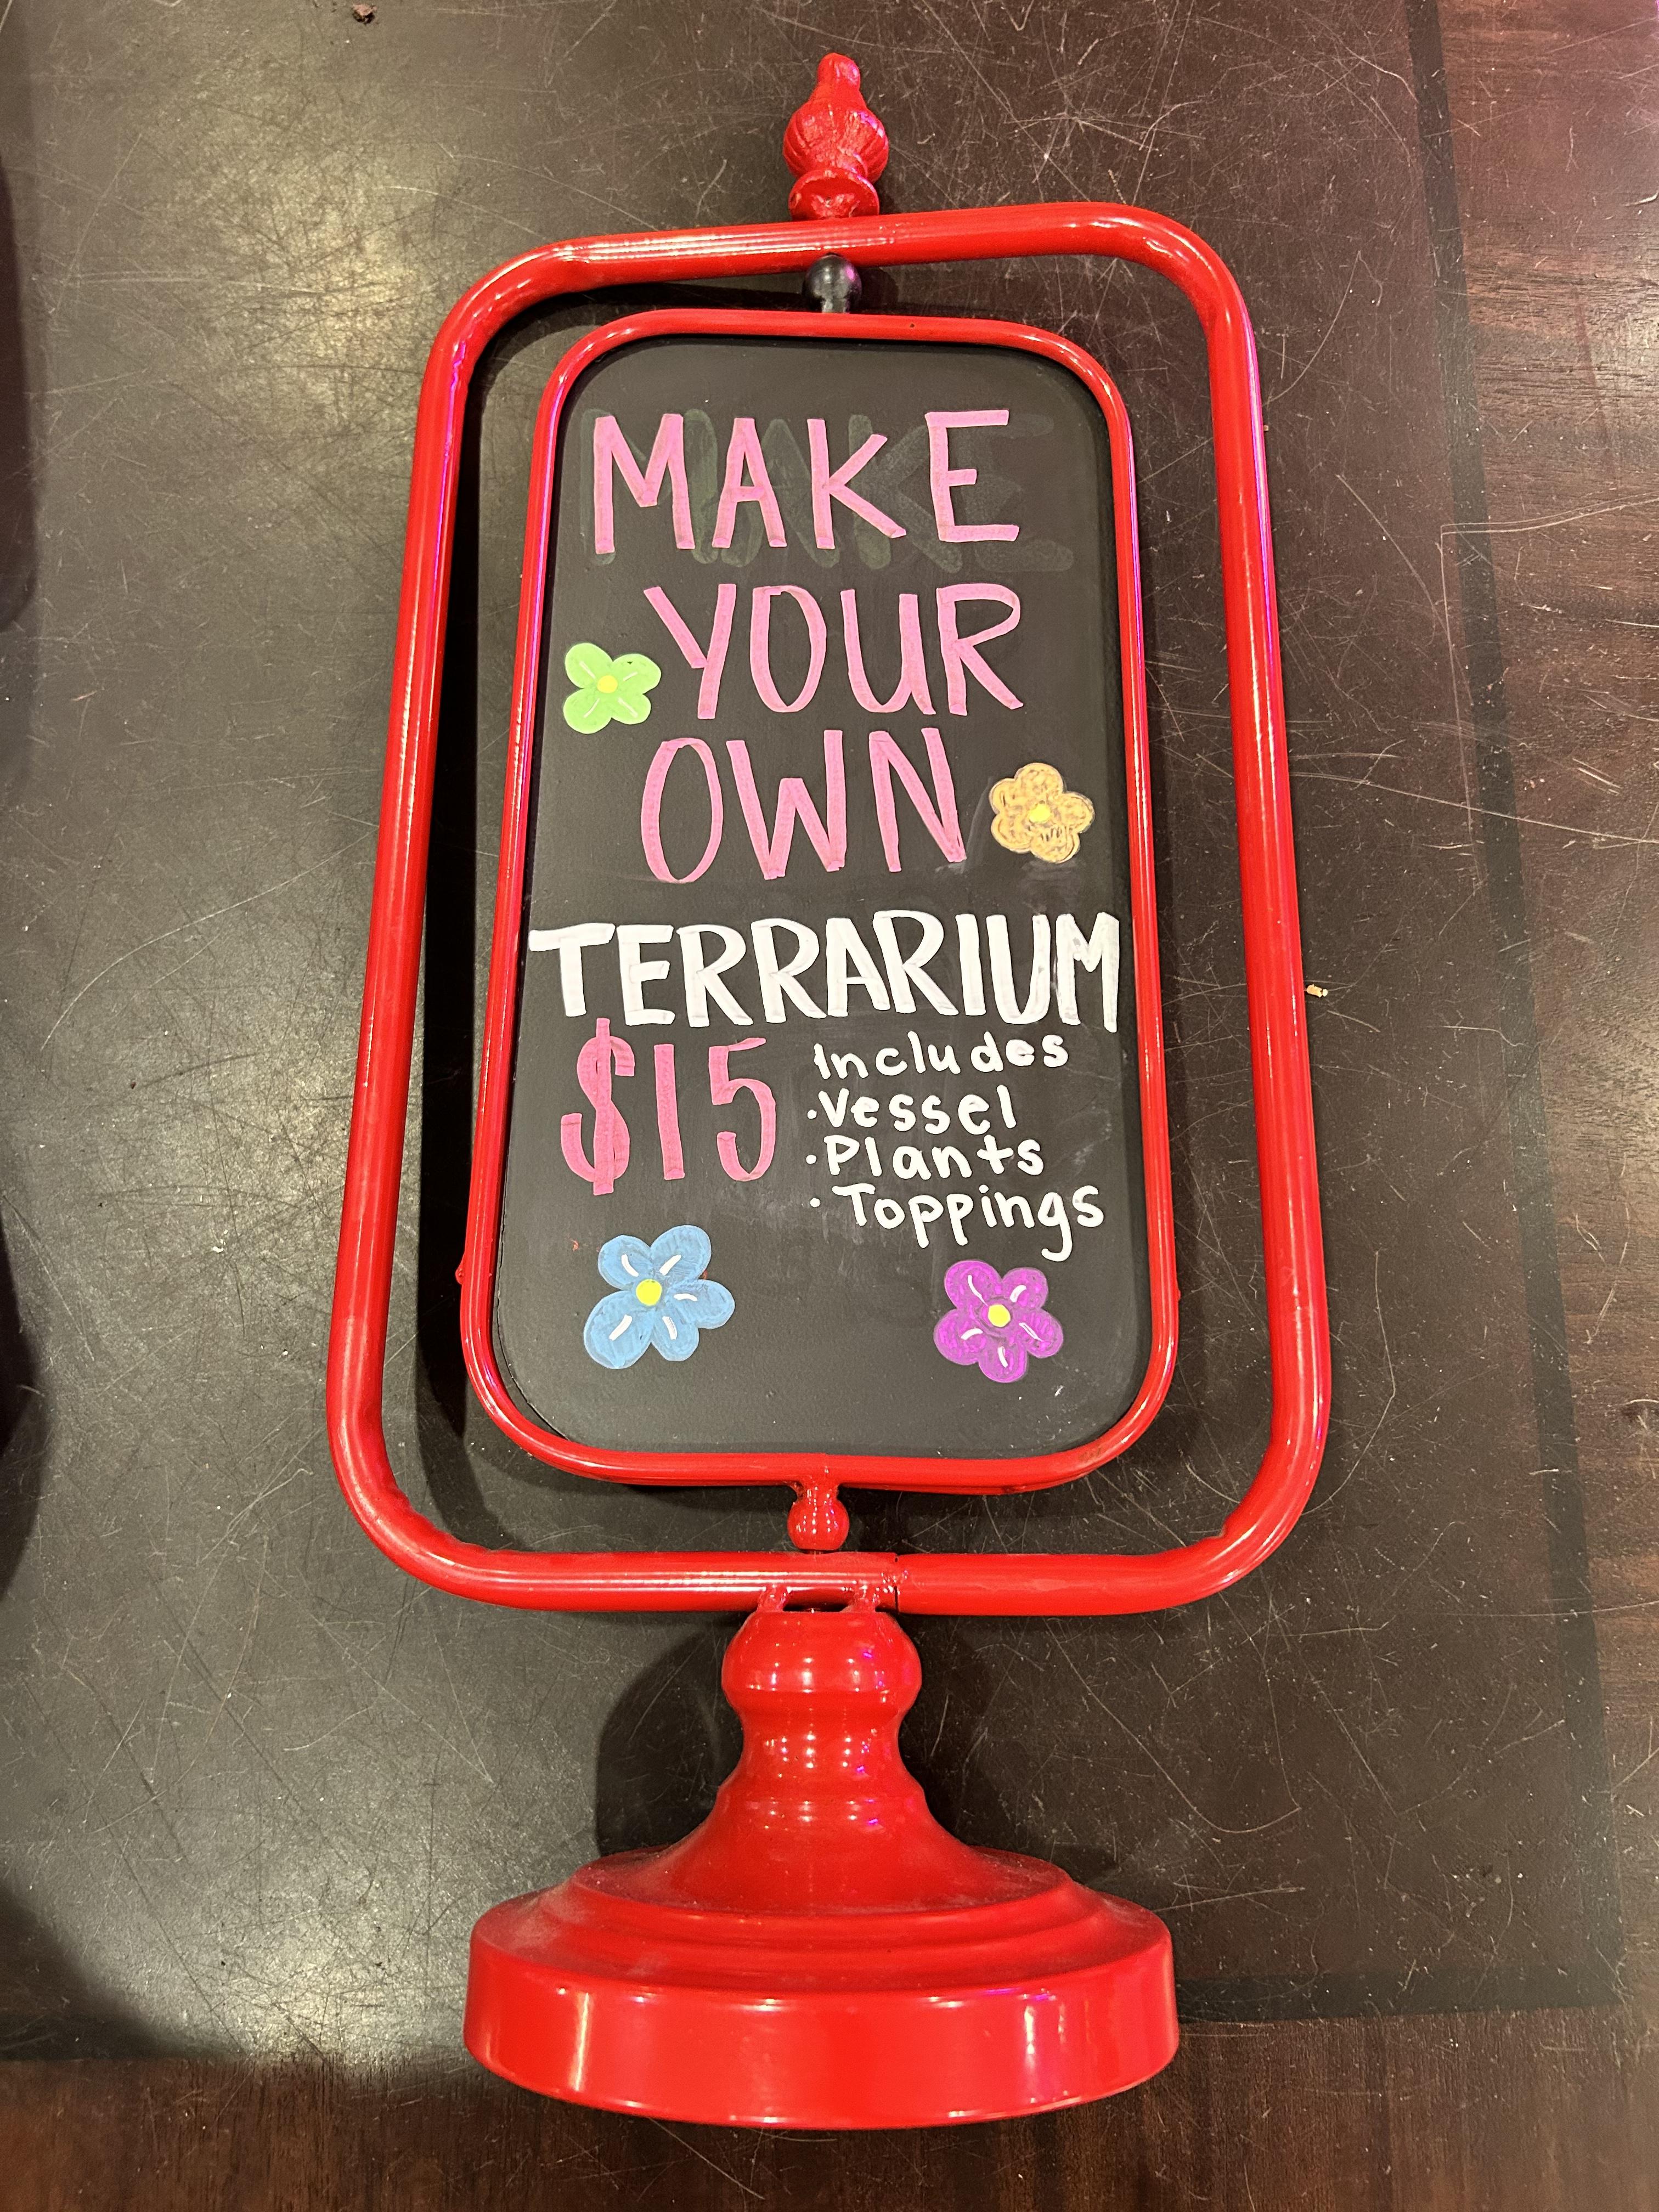 MAKE
YOUR
OWN
TERRARIUM
$15
Includes
·Vessel
·Plants
·Toppings